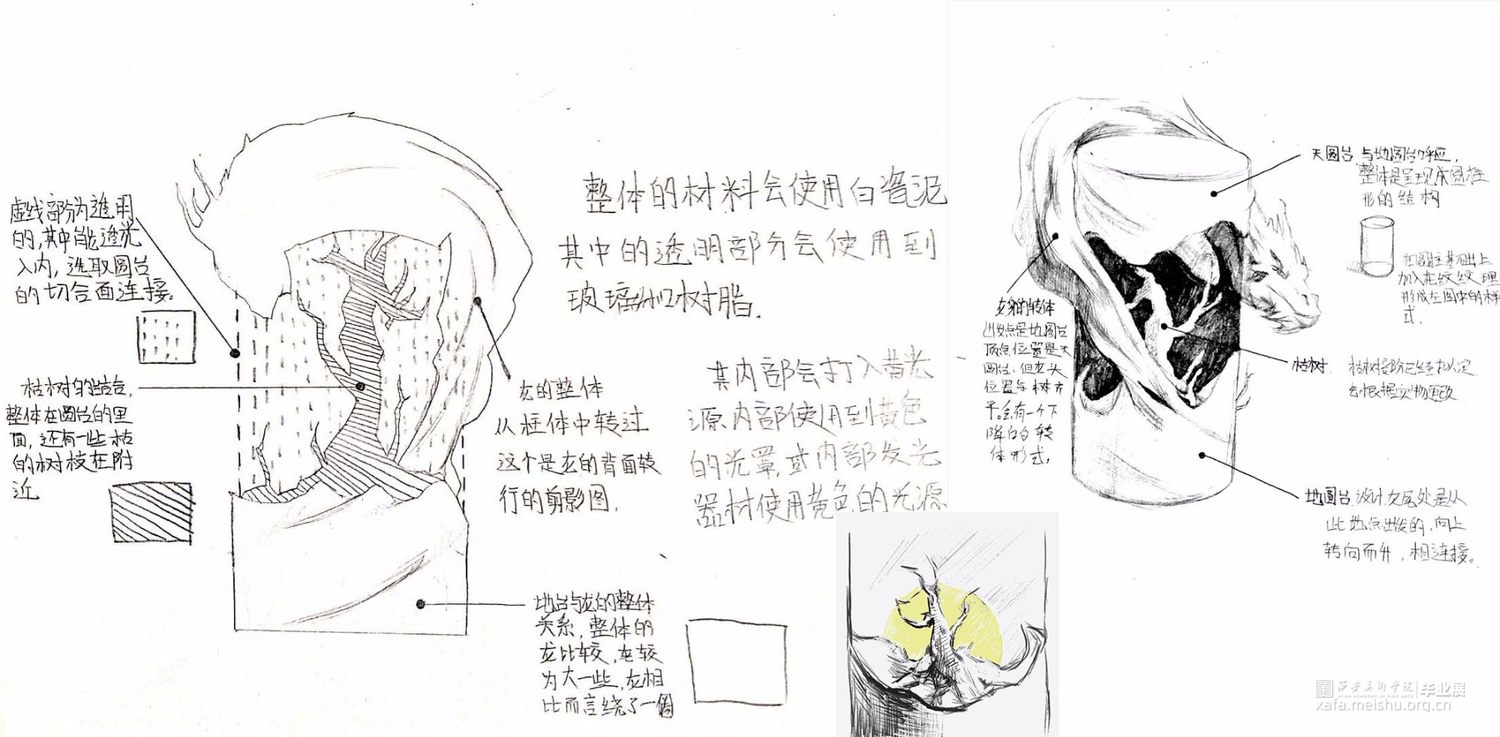 虚线部分为透明
的,其中能透光
入内,选取圆台
的切合面连接。
枯树的结合,
整体在圆台的里
面,还有一些枯
的树枝在附
近
整体的材料会使用白瓷泥
其中的透明部分会使用到
玻璃和树脂.
其内部会打入黄光
源内部使用到黄色
的光罩,或内部发光
器材使用黄色的光源
龙的整体
从柱体中转过
这个是龙的背面转
行的剪影图.
地台与龙的整体
关系,整体的
龙比较,龙较
为大一些,龙相
比而言绕了一圈
天圆台与地圆台呼应,
整体是呈现
形的结构
在圆柱基础上
加入龙纹纹理
形成左图中的样
式.
龙身的转体
出发点是地圆台
顶点位置是天
圆台,但龙头
位置与树齐
平。会有一个下
降的转
体形式.
枯树
枯树
去根据实物更改
地圆台.设计龙尾处是从
此地点出发的,向上
转向而升,相连接。
西安美术学院|毕业展
xafa.meishu.org.cn